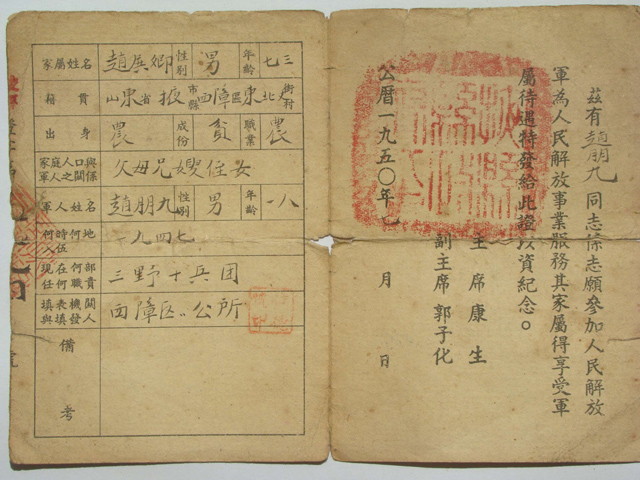 家屬姓名 趙興鄉 性別 男 年齡 七三
籍貫 山東省掖縣市西障區東北 街村
出身 農 成份 貧 職業 農
家庭人口與軍人之關係 父母兄嫂侄女
軍人姓名 趙朋九 性別 男 年齡 一八
何時何地入伍 一九四七
現在何部任何職 三野十兵团
填表機關與填發人 西障区公所
備考
茲有趙朋九同志係志願參加人民解放
軍為人民解放事業服務其家屬得享受軍
屬待遇特發給此證以資紀念。
主席康生
副主席郭子化
公曆一九五〇年 月 日